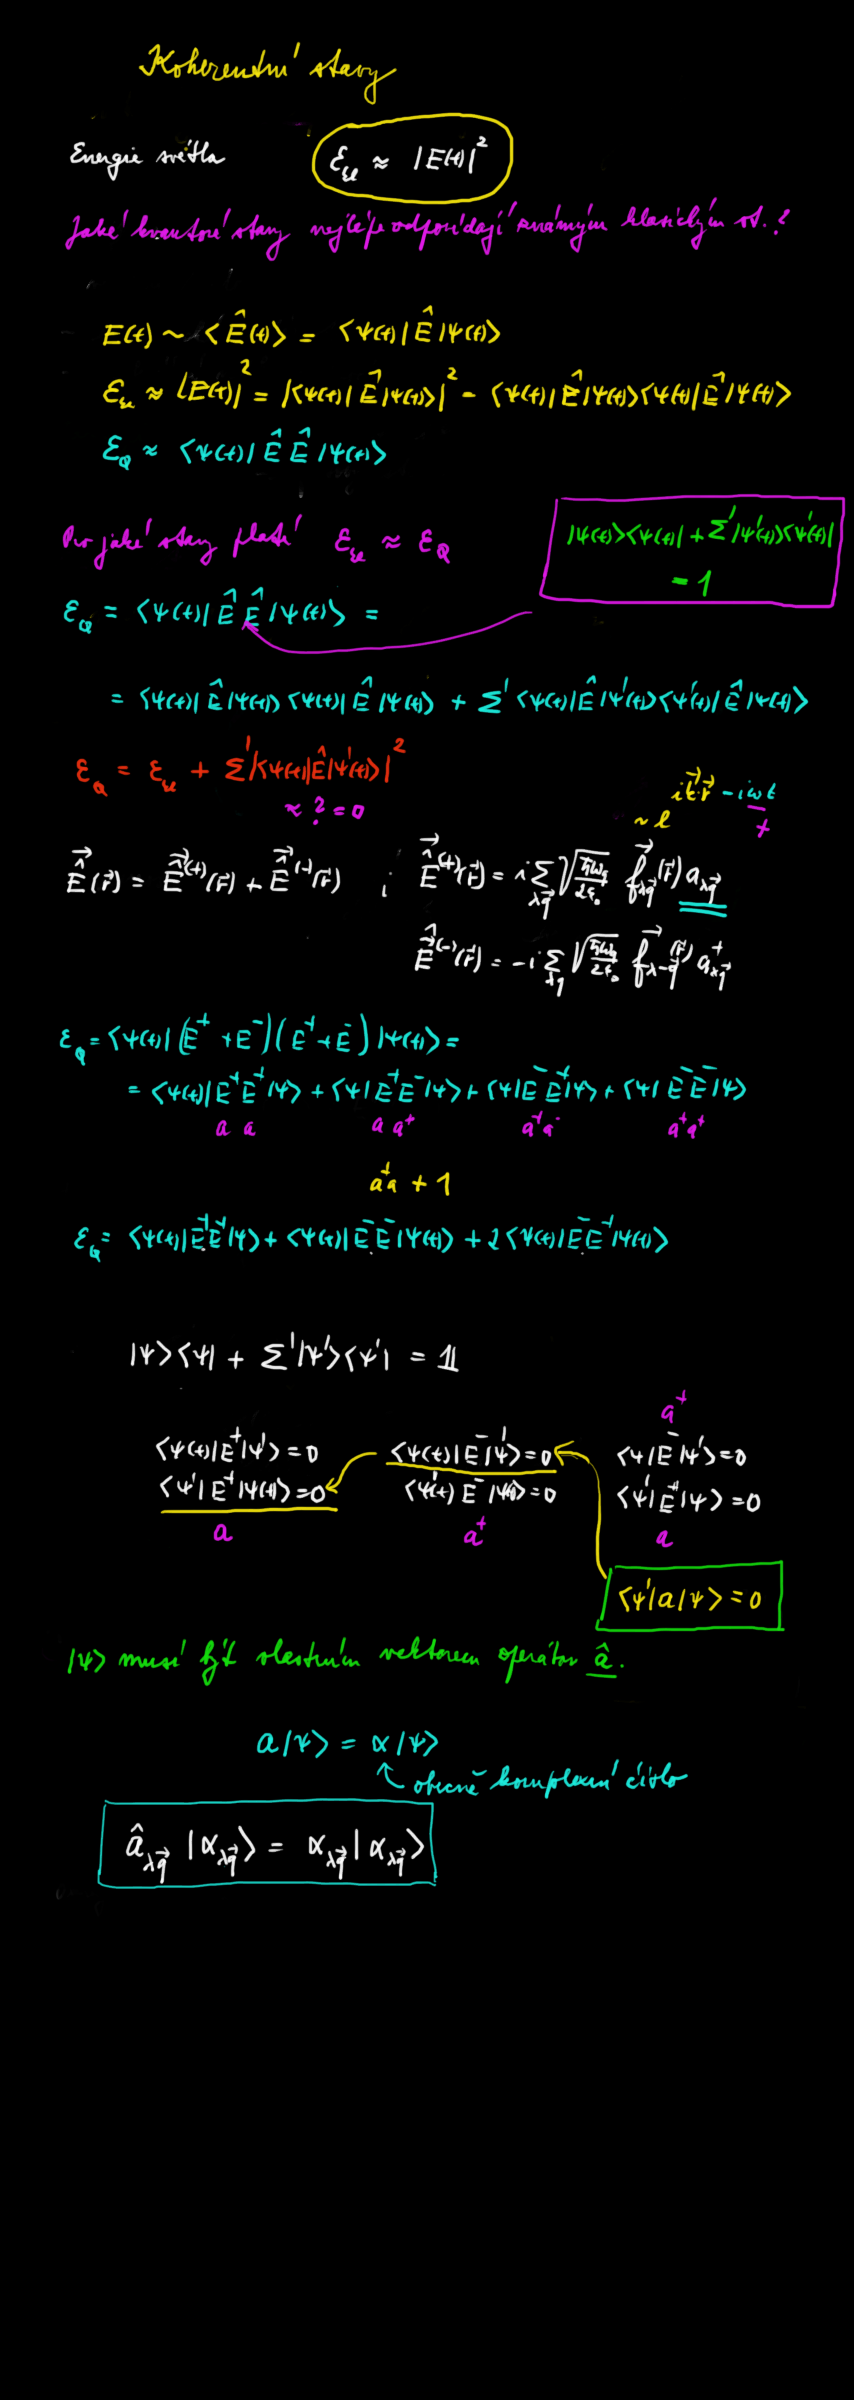 Koherentní stavy
Energie světla ℰ_kl ≈ |E(t)|²
Jaké kvantové stavy nejlépe odpovídají známým klasickým st.?
E(t) ~ ⟨Ê(t)⟩ = ⟨ψ(t)|Ê|ψ(t)⟩
ℰ_kl ≈ |E(t)|² = |⟨ψ(t)|Ê|ψ(t)⟩|² = ⟨ψ(t)|Ê|ψ(t)⟩⟨ψ(t)|Ê|ψ(t)⟩
ℰ_Q ≈ ⟨ψ(t)|Ê Ê|ψ(t)⟩
|ψ(t)⟩⟨ψ(t)| + Σ'|ψ'(t)⟩⟨ψ'(t)|
= 1
Pro jaké stavy platí ℰ_kl ≈ ℰ_Q
ℰ_Q = ⟨ψ(t)|Ê Ê|ψ(t)⟩ =
= ⟨ψ(t)|Ê|ψ(t)⟩⟨ψ(t)|Ê|ψ(t)⟩ + Σ'⟨ψ(t)|Ê|ψ'(t)⟩⟨ψ'(t)|Ê|ψ(t)⟩
ℰ_Q = ℰ_kl + Σ'|⟨ψ(t)|Ê|ψ'(t)⟩|²
≈ ? = 0
~ e^{i k⃗·r⃗ - iωt}
+
Ê⃗(r⃗) = Ê⃗^(+)(r⃗) + Ê⃗^(-)(r⃗) ; Ê⃗^(+)(r⃗) = i Σ_{λq⃗} √(ħω_q/2ε₀) f⃗_{λq⃗}(r⃗) a_{λq⃗}
Ê⃗^(-)(r⃗) = -i Σ_{λq} √(ħω_q/2ε₀) f⃗_{λ-q⃗}(r⃗) a⁺_{λq⃗}
ℰ_Q = ⟨ψ(t)|(E⁺ + E⁻)(E⁺ + E⁻)|ψ(t)⟩ =
= ⟨ψ(t)|E⁺E⁺|ψ⟩ + ⟨ψ|E⁺E⁻|ψ⟩ + ⟨ψ|E⁻E⁺|ψ⟩ + ⟨ψ|E⁻E⁻|ψ⟩
a a a a⁺ a⁺a a⁺a⁺
a⁺a + 1
ℰ_Q = ⟨ψ(t)|E⁺E⁺|ψ⟩ + ⟨ψ(t)|E⁻E⁻|ψ(t)⟩ + 2⟨ψ(t)|E⁻E⁺|ψ(t)⟩
|ψ⟩⟨ψ| + Σ'|ψ'⟩⟨ψ'| = 𝟙
a⁺
⟨ψ(t)|E⁺|ψ'⟩ = 0 ⟨ψ(t)|E⁻|ψ'⟩ = 0 ⟨ψ|E⁻|ψ'⟩ = 0
⟨ψ'|E⁺|ψ(t)⟩ = 0 ⟨ψ'(t)|E⁻|ψ(t)⟩ = 0 ⟨ψ'|E⁺|ψ⟩ = 0
a a⁺ a
⟨ψ'|a|ψ⟩ = 0
|ψ⟩ musí být vlastním vektorem operátoru â.
a|ψ⟩ = α|ψ⟩
obecně komplexní číslo
â_{λq⃗} |α_{λq⃗}⟩ = α_{λq⃗} |α_{λq⃗}⟩